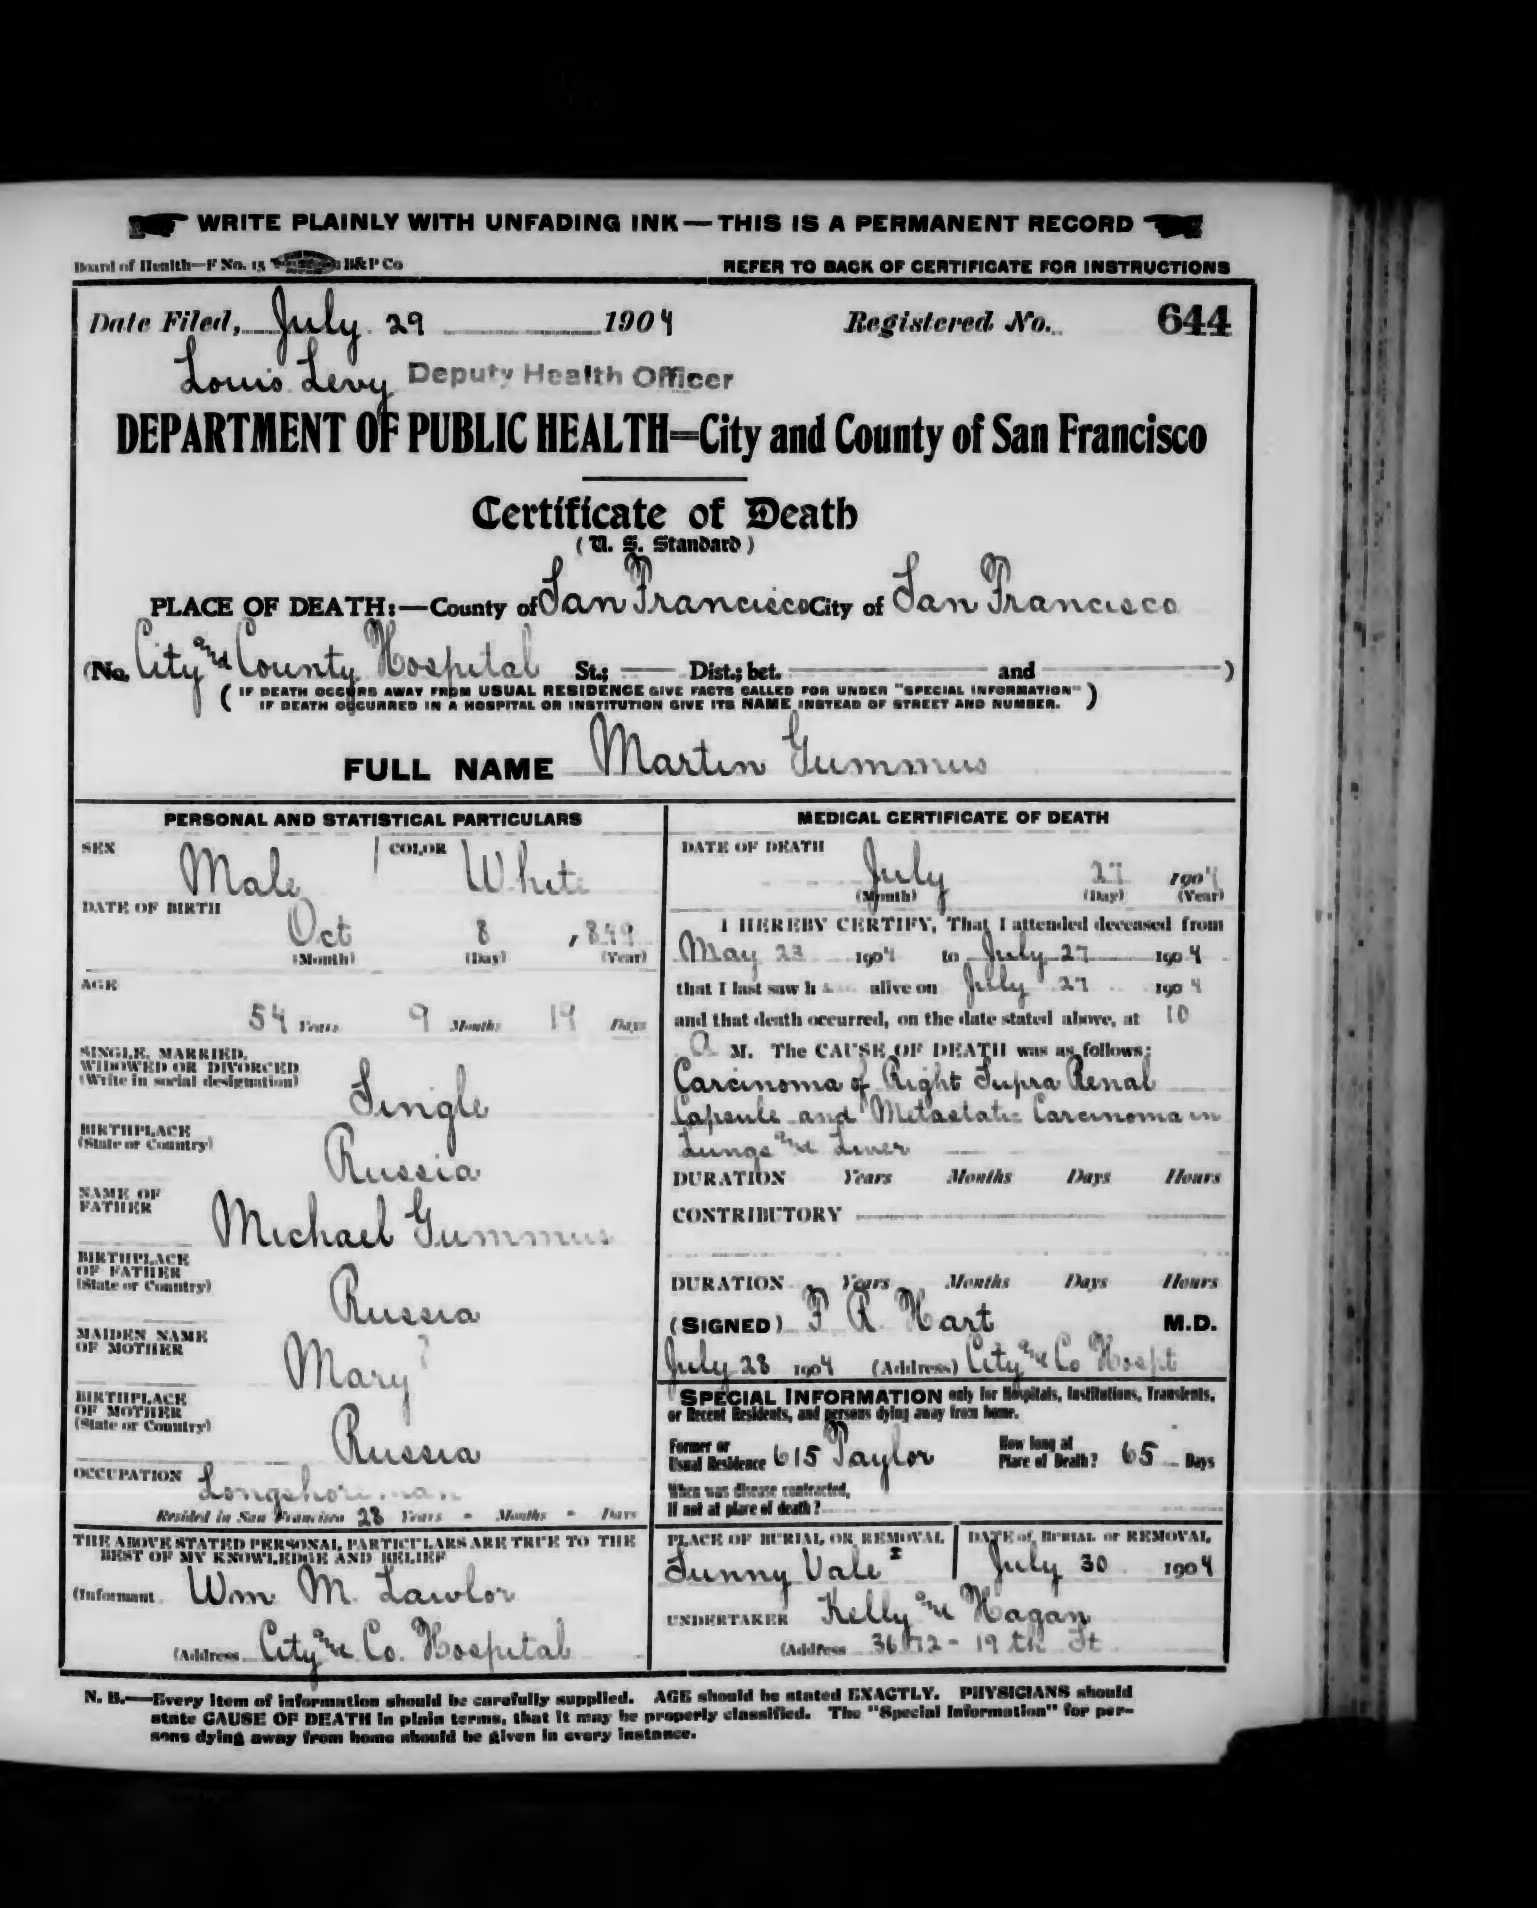 WRITE PLAINLY WITH UNFADING INK — THIS IS A PERMANENT RECORD
Board of Health—F No. 15 B&P Co
REFER TO BACK OF CERTIFICATE FOR INSTRUCTIONS
Date Filed, July 29 1904 Registered No. 644
Louis Levy Deputy Health Officer
DEPARTMENT OF PUBLIC HEALTH=City and County of San Francisco
Certificate of Death
(U. S. Standard)
PLACE OF DEATH:—County of San Francisco City of San Francisco
(No. City and County Hospital St.; Dist.; bet. and )
( IF DEATH OCCURS AWAY FROM USUAL RESIDENCE GIVE FACTS CALLED FOR UNDER "SPECIAL INFORMATION"
IF DEATH OCCURRED IN A HOSPITAL OR INSTITUTION GIVE ITS NAME INSTEAD OF STREET AND NUMBER. )
FULL NAME Martin Gummus
PERSONAL AND STATISTICAL PARTICULARS
SEX Male COLOR White
DATE OF BIRTH
Oct 8 , 849
(Month) (Day) (Year)
AGE
54 Years 9 Months 19 Days
SINGLE, MARRIED,
WIDOWED OR DIVORCED
(Write in social designation)
Single
BIRTHPLACE
(State or Country)
Russia
NAME OF
FATHER
Michael Gummus
BIRTHPLACE
OF FATHER
(State or Country)
Russia
MAIDEN NAME
OF MOTHER
Mary ?
BIRTHPLACE
OF MOTHER
(State or Country)
Russia
OCCUPATION Longshoreman
Resided in San Francisco 28 Years - Months - Days
THE ABOVE STATED PERSONAL PARTICULARS ARE TRUE TO THE
BEST OF MY KNOWLEDGE AND BELIEF
(Informant Wm M. Lawlor
(Address City and Co. Hospital
MEDICAL CERTIFICATE OF DEATH
DATE OF DEATH
July 27 1904
(Month) (Day) (Year)
I HEREBY CERTIFY, That I attended deceased from
May 23 1904 to July 27 1904
that I last saw h alive on July 27 1904
and that death occurred, on the date stated above, at 10
A M. The CAUSE OF DEATH was as follows:
Carcinoma of Right Supra Renal
Capsule and Metastatic Carcinoma in
Lungs and Liver
DURATION Years Months Days Hours
CONTRIBUTORY
DURATION Years Months Days Hours
(SIGNED) F R Hart M.D.
July 28 1904 (Address) City and Co Hospt
SPECIAL INFORMATION only for Hospitals, Institutions, Transients,
or Recent Residents, and persons dying away from home.
Former or
Usual Residence 615 Taylor
How long at
Place of Death? 65 Days
When was disease contracted,
If not at place of death?
PLACE OF BURIAL OR REMOVAL
Sunny Vale
DATE of BURIAL or REMOVAL
July 30 1904
UNDERTAKER Kelly and Hagan
(Address 3672 - 19th St
N. B.—Every item of information should be carefully supplied. AGE should be stated EXACTLY. PHYSICIANS should
state CAUSE OF DEATH in plain terms, that it may be properly classified. The "Special Information" for per-
sons dying away from home should be given in every instance.